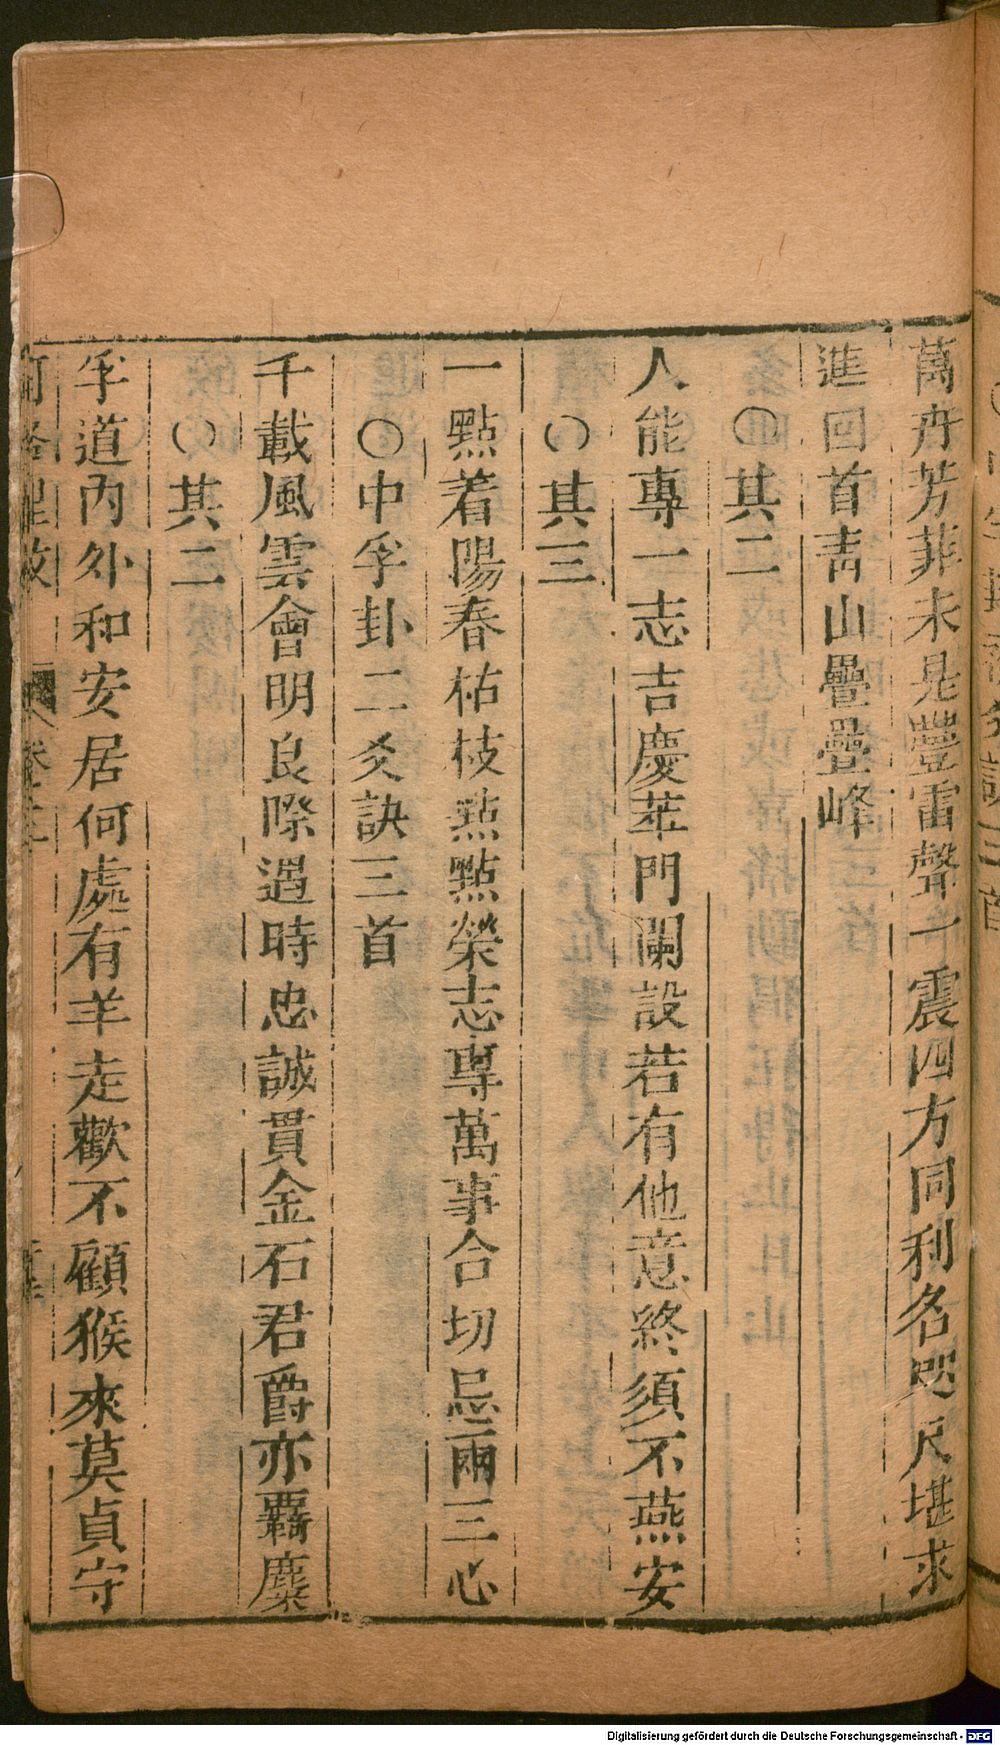 萬卉芳菲未是豐雷聲一震四方同利名咫尺堪求
進回首青山疊疊峰
○其二
人能專一志吉慶萃門闌設若有他意終須不燕安
○其三
一點着陽春枯枝点點榮志專萬事合切忌兩三心
○中孚卦二爻訣三首
千載風雲會明良際遇時忠誠貫金石君爵亦覊縻
○其二
孚道內外和安居何處有羊走歡不顧猴來莫貞守
河洛理数 卷三
Digitalisierung gefördert durch die Deutsche Forschungsgemeinschaft - DFG